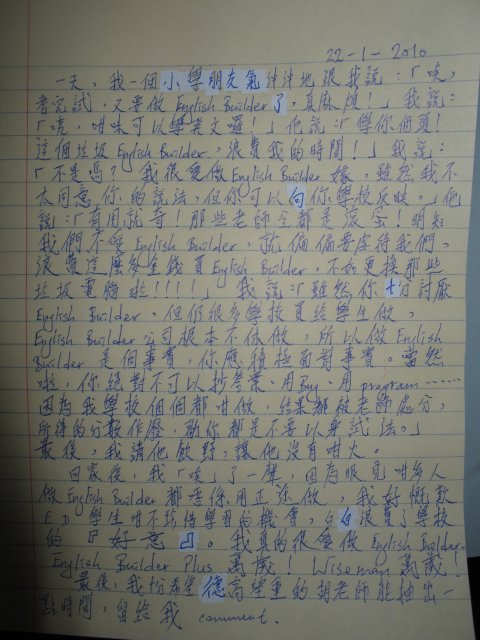 22-1-2010
一天，我一個小學朋友氣沖沖地跟我說：「唉，
考完試，又要做 English Builder 了，真麻煩！」我說：
「唉，咁咪可以學英文囉！」他說：「學你個頭！
這個垃圾 English Builder，浪費我的時間！」我說：
「不是嗎？我很愛做 English Builder 㗎，雖然我不
太同意你的說法，但你可以向你學校反映。」他
說：「有用就奇！那些老師全都是混蛋！明知
我們不愛 English Builder，就偏偏要虐待我們。
浪費這麼多金錢買 English Builder，不如更換那些
垃圾電腦啦！！！！」我說：「雖然你十分討厭
English Builder，但仍很多學校買給學生做，
English Builder 公司根本不休做，所以做 English
Builder 是個事實，你應積極面對事實。當然
啦，你絕對不可以抄答案、用Bug、用 program……
因為我學校個個都咁做，結果都被老師處分，
所得的分數作廢，勸你都是不要以身試法。」
最後，我請他飲野，讓他沒有咁大。
回家後，我「唉」了一聲，因為眼見咁多人
做 English Builder 都唔用正途做，我好慨歎
ED 學生咁不珍惜學習的機會，白白浪費了學校
的『好意』。我真的很愛做 English Builder.
English Builder Plus 萬歲！Wiseman 萬歲！
最後，我希望德高望重的胡老師能抽出一
點時間，留給我 comment.